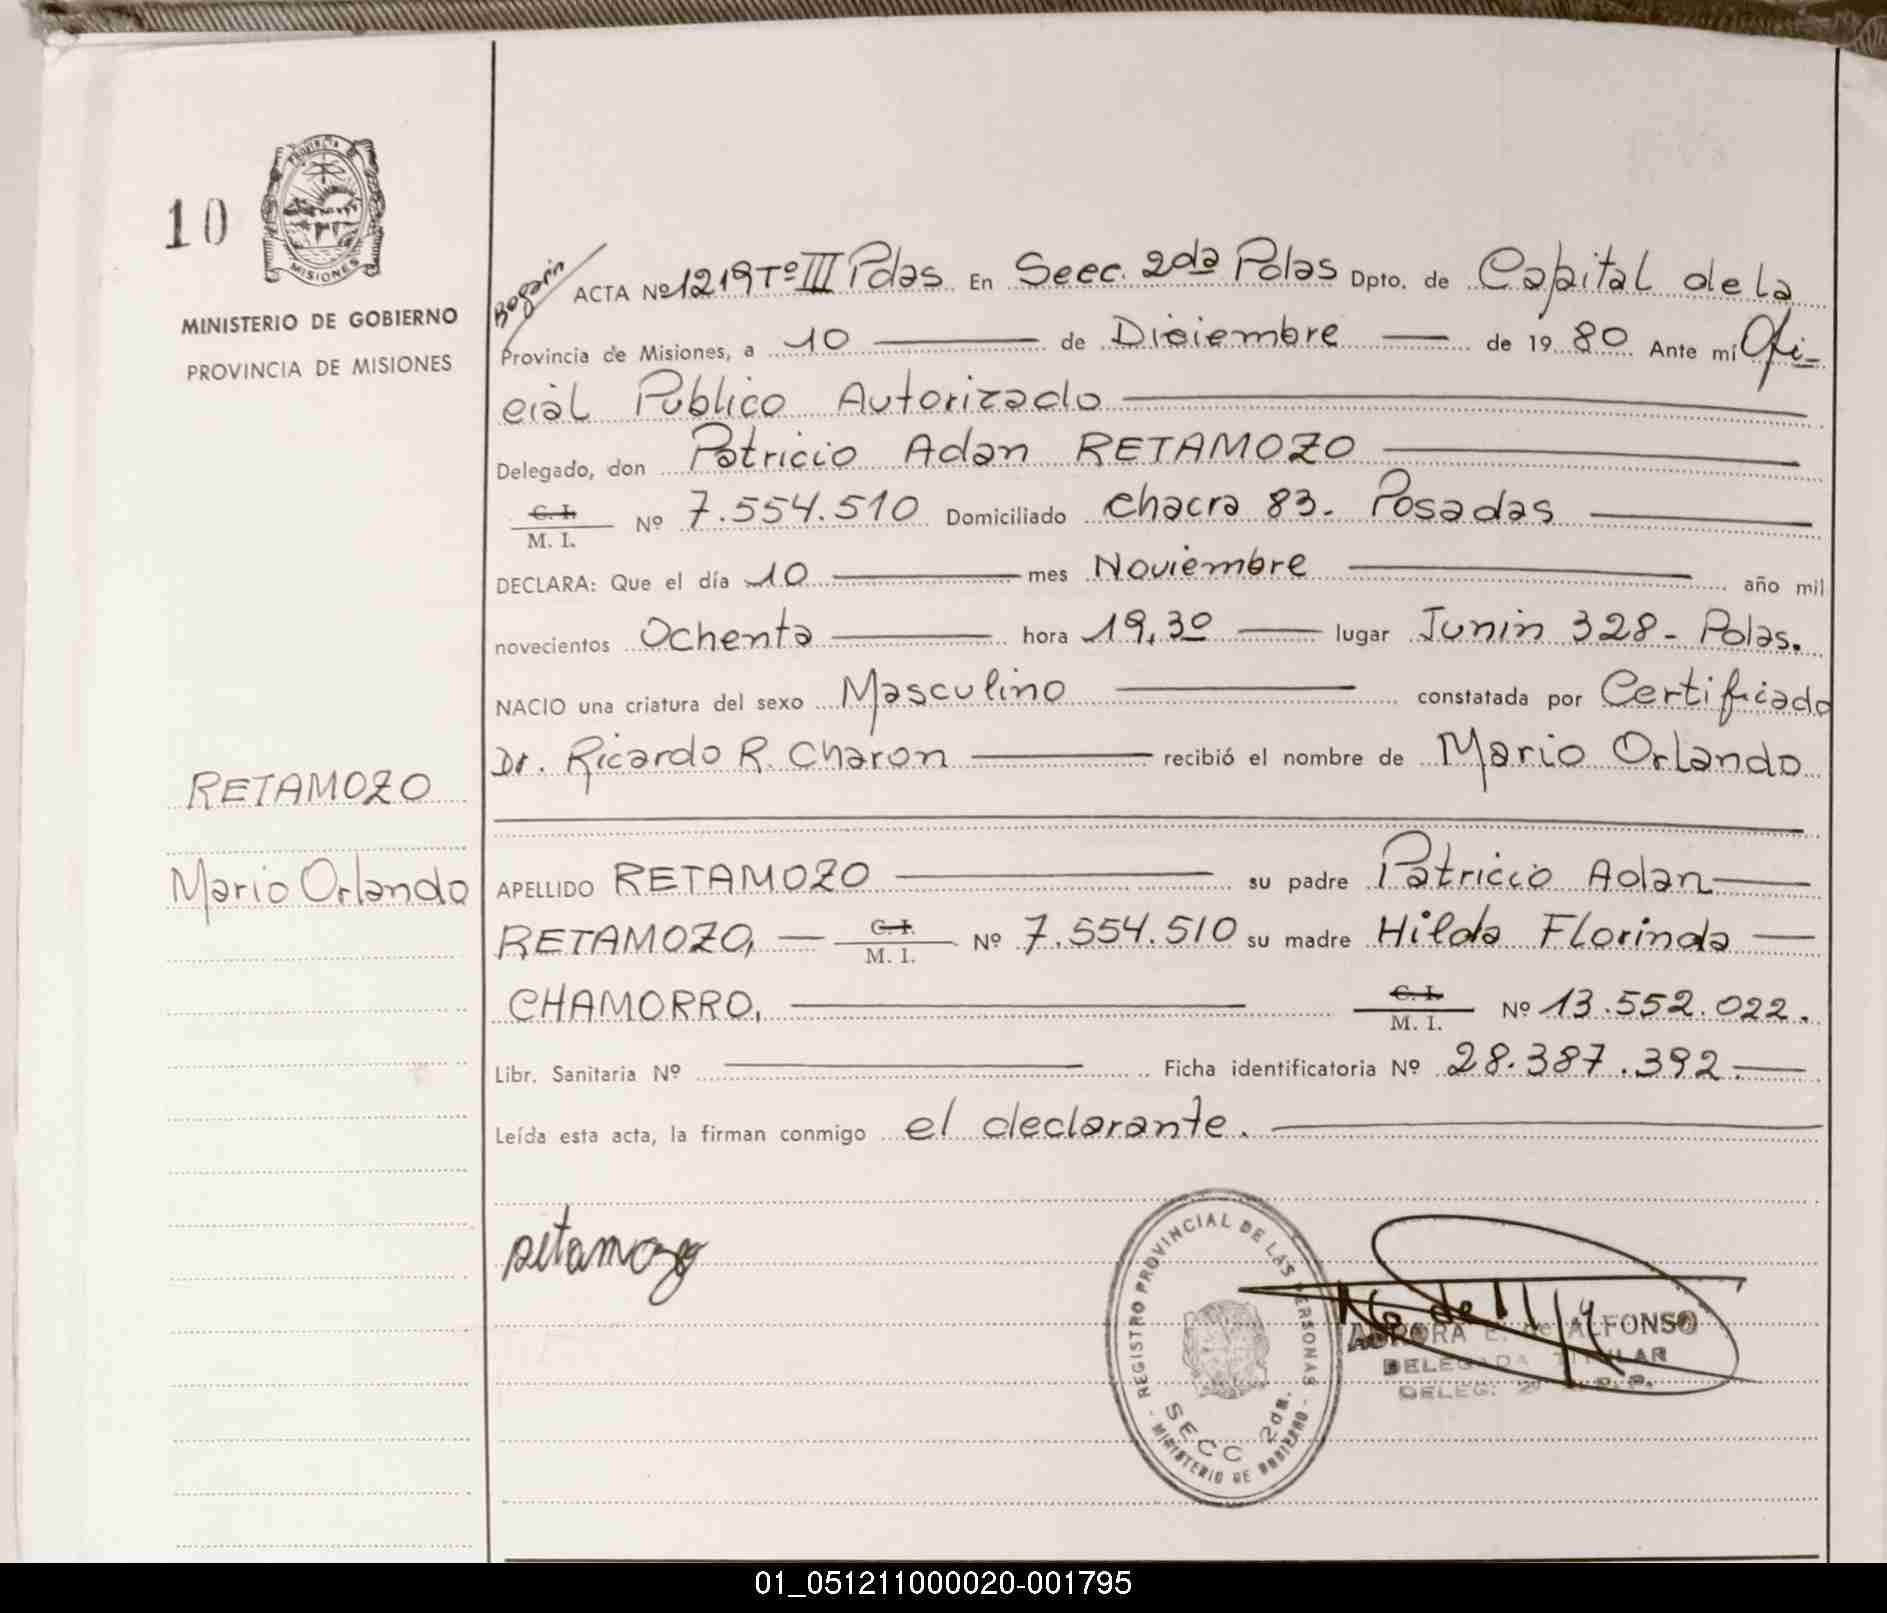 10
PROVINCIA DE
MISIONES
MINISTERIO DE GOBIERNO
PROVINCIA DE MISIONES
RETAMOZO
Mario Orlando
Bogarin
ACTA Nº 1219 Tº III Pdas En Secc. 2da Pdas Dpto. de Capital de la
Provincia de Misiones, a 10 de Diciembre de 19 80 Ante mí Ofi-
cial Publico Autorizado
Delegado, don Patricio Adan RETAMOZO
C. I.
M. I. Nº 7.554.510 Domiciliado Chacra 83. Posadas
DECLARA: Que el día 10 mes Noviembre año mil
novecientos Ochenta hora 19,30 lugar Junin 328 - Pdas.
NACIO una criatura del sexo Masculino constatada por Certificado
Dr. Ricardo R. Charon recibió el nombre de Mario Orlando
APELLIDO RETAMOZO su padre Patricio Adan
RETAMOZO, C. I. M. I. Nº 7.554.510 su madre Hilda Florinda
CHAMORRO, C. I. M. I. Nº 13.552.022.
Libr. Sanitaria Nº Ficha identificatoria Nº 28.387.392.
Leída esta acta, la firman conmigo el declarante.
retamozo
REGISTRO PROVINCIAL DE LAS PERSONAS
SECC 2da.
MINISTERIO DE GOBIERNO
AURORA E. de ALFONSO
DELEGADA TITULAR
DELEG. 2
01_051211000020-001795